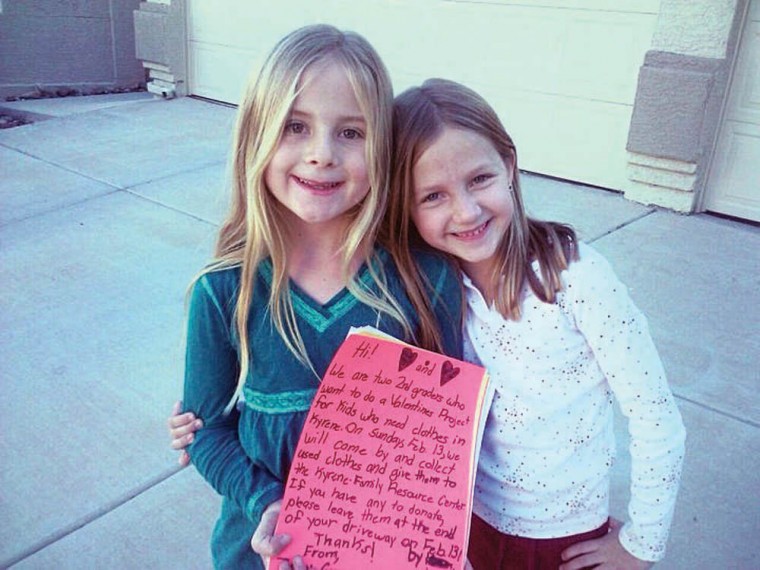 Hi! ♥ and ♥
We are two 2nd graders who
want to do a Valentines Project
for Kids who need clothes in
Kyrene. On Sunday, Feb 13, we
will come by and collect
used clothes and give them to
the Kyrene Family Resource Center
If you have any to donate,
please leave them at the end
of your driveway on Feb 13!
Thanks! by
From,